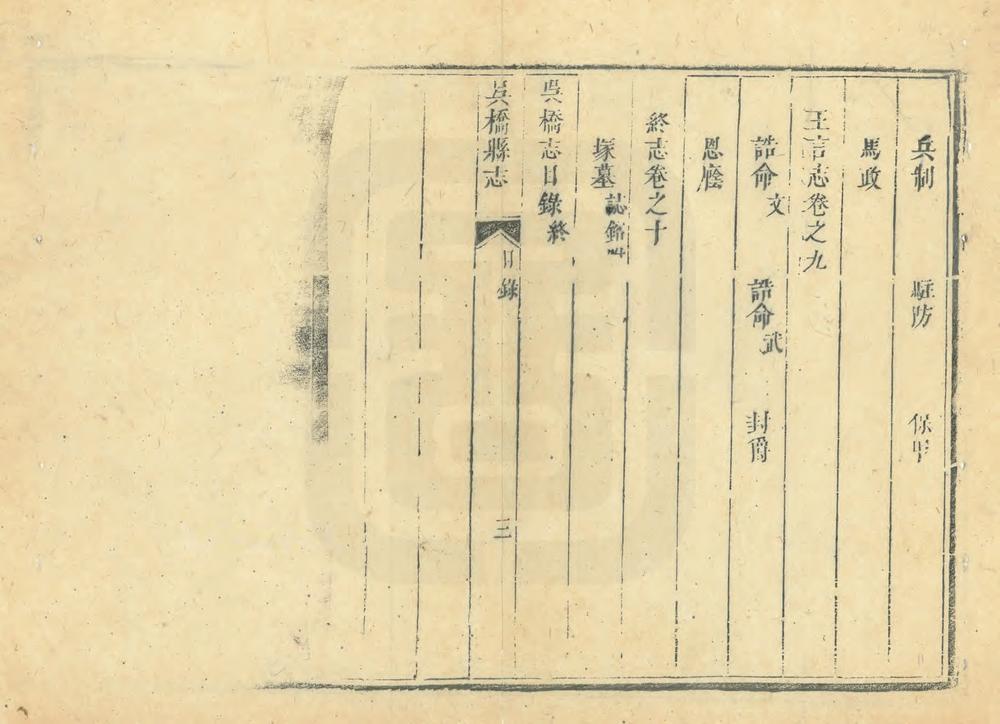 兵制 駐防 保甲
馬政
王言志卷之九
誥命文 誥命武 封爵
恩廕
終志卷之十
塚墓 誌銘
吳橋志目錄終
吳橋縣志 目錄 三